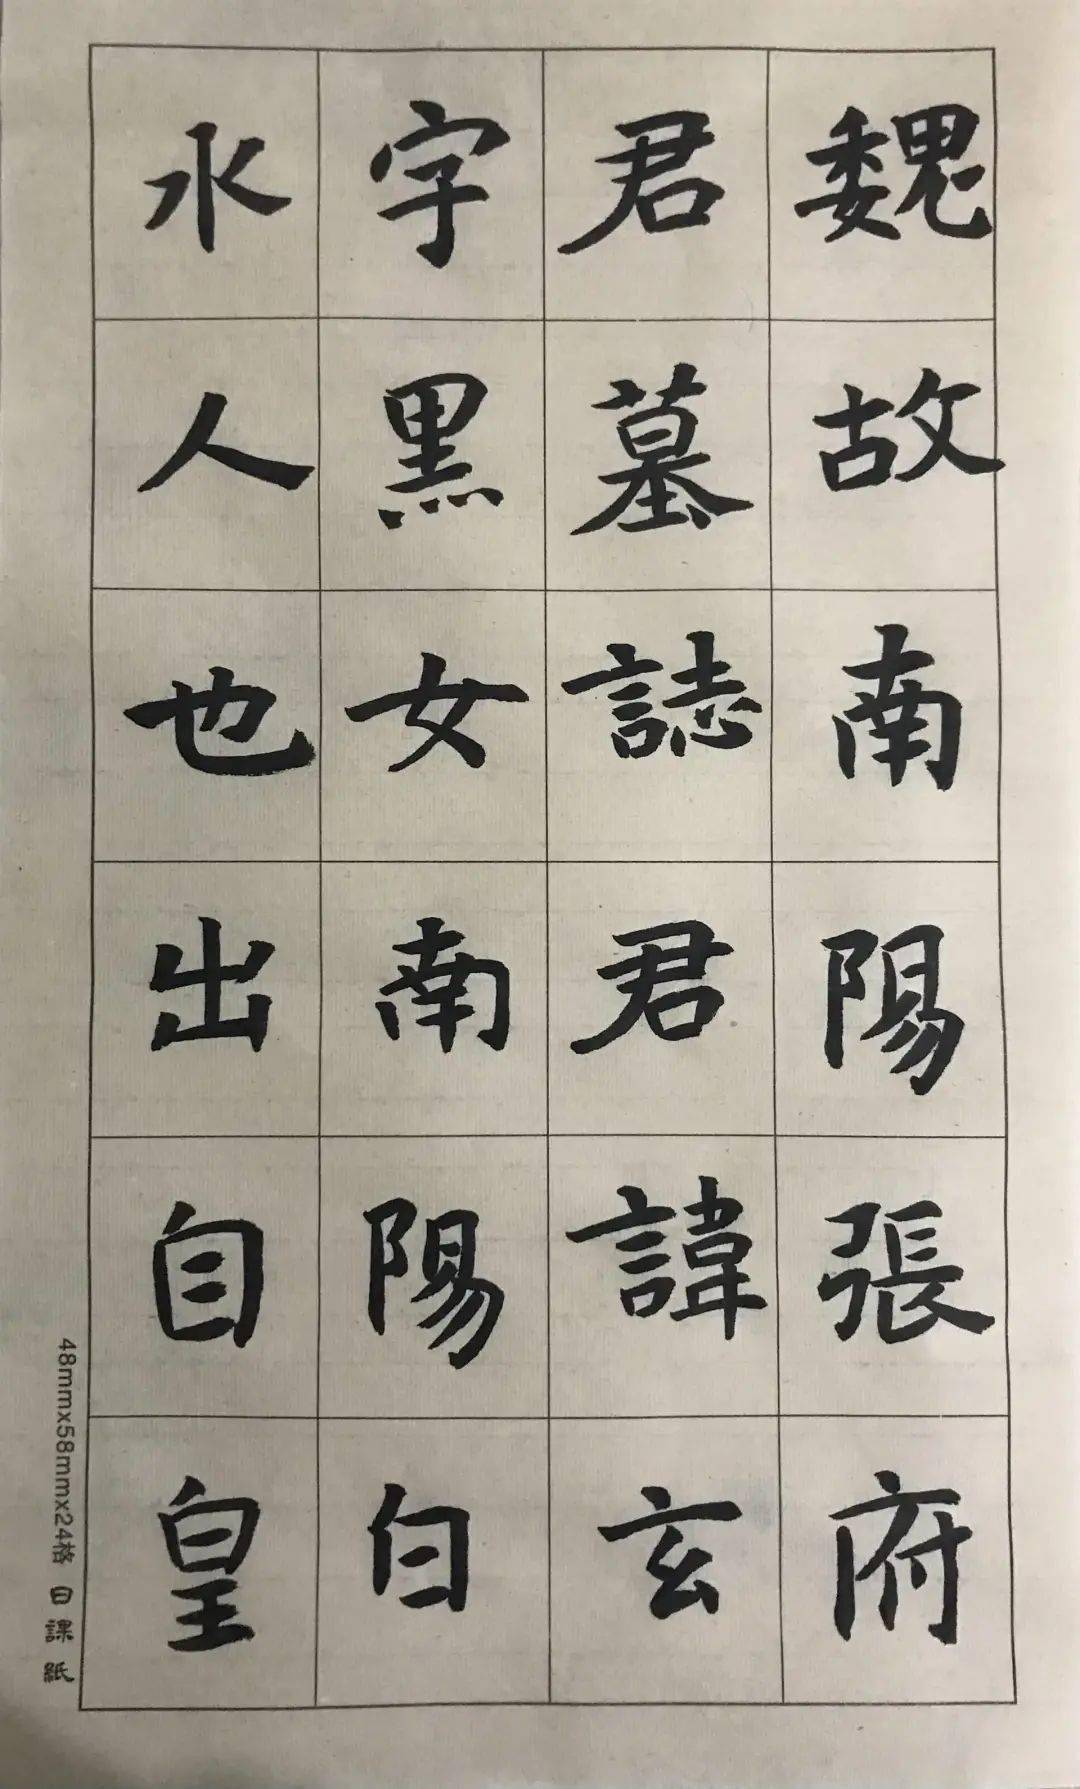 魏故南陽張府
君墓誌君諱玄
字黑女南陽白
水人也出自皇
48mmx58mmx24格 日課紙